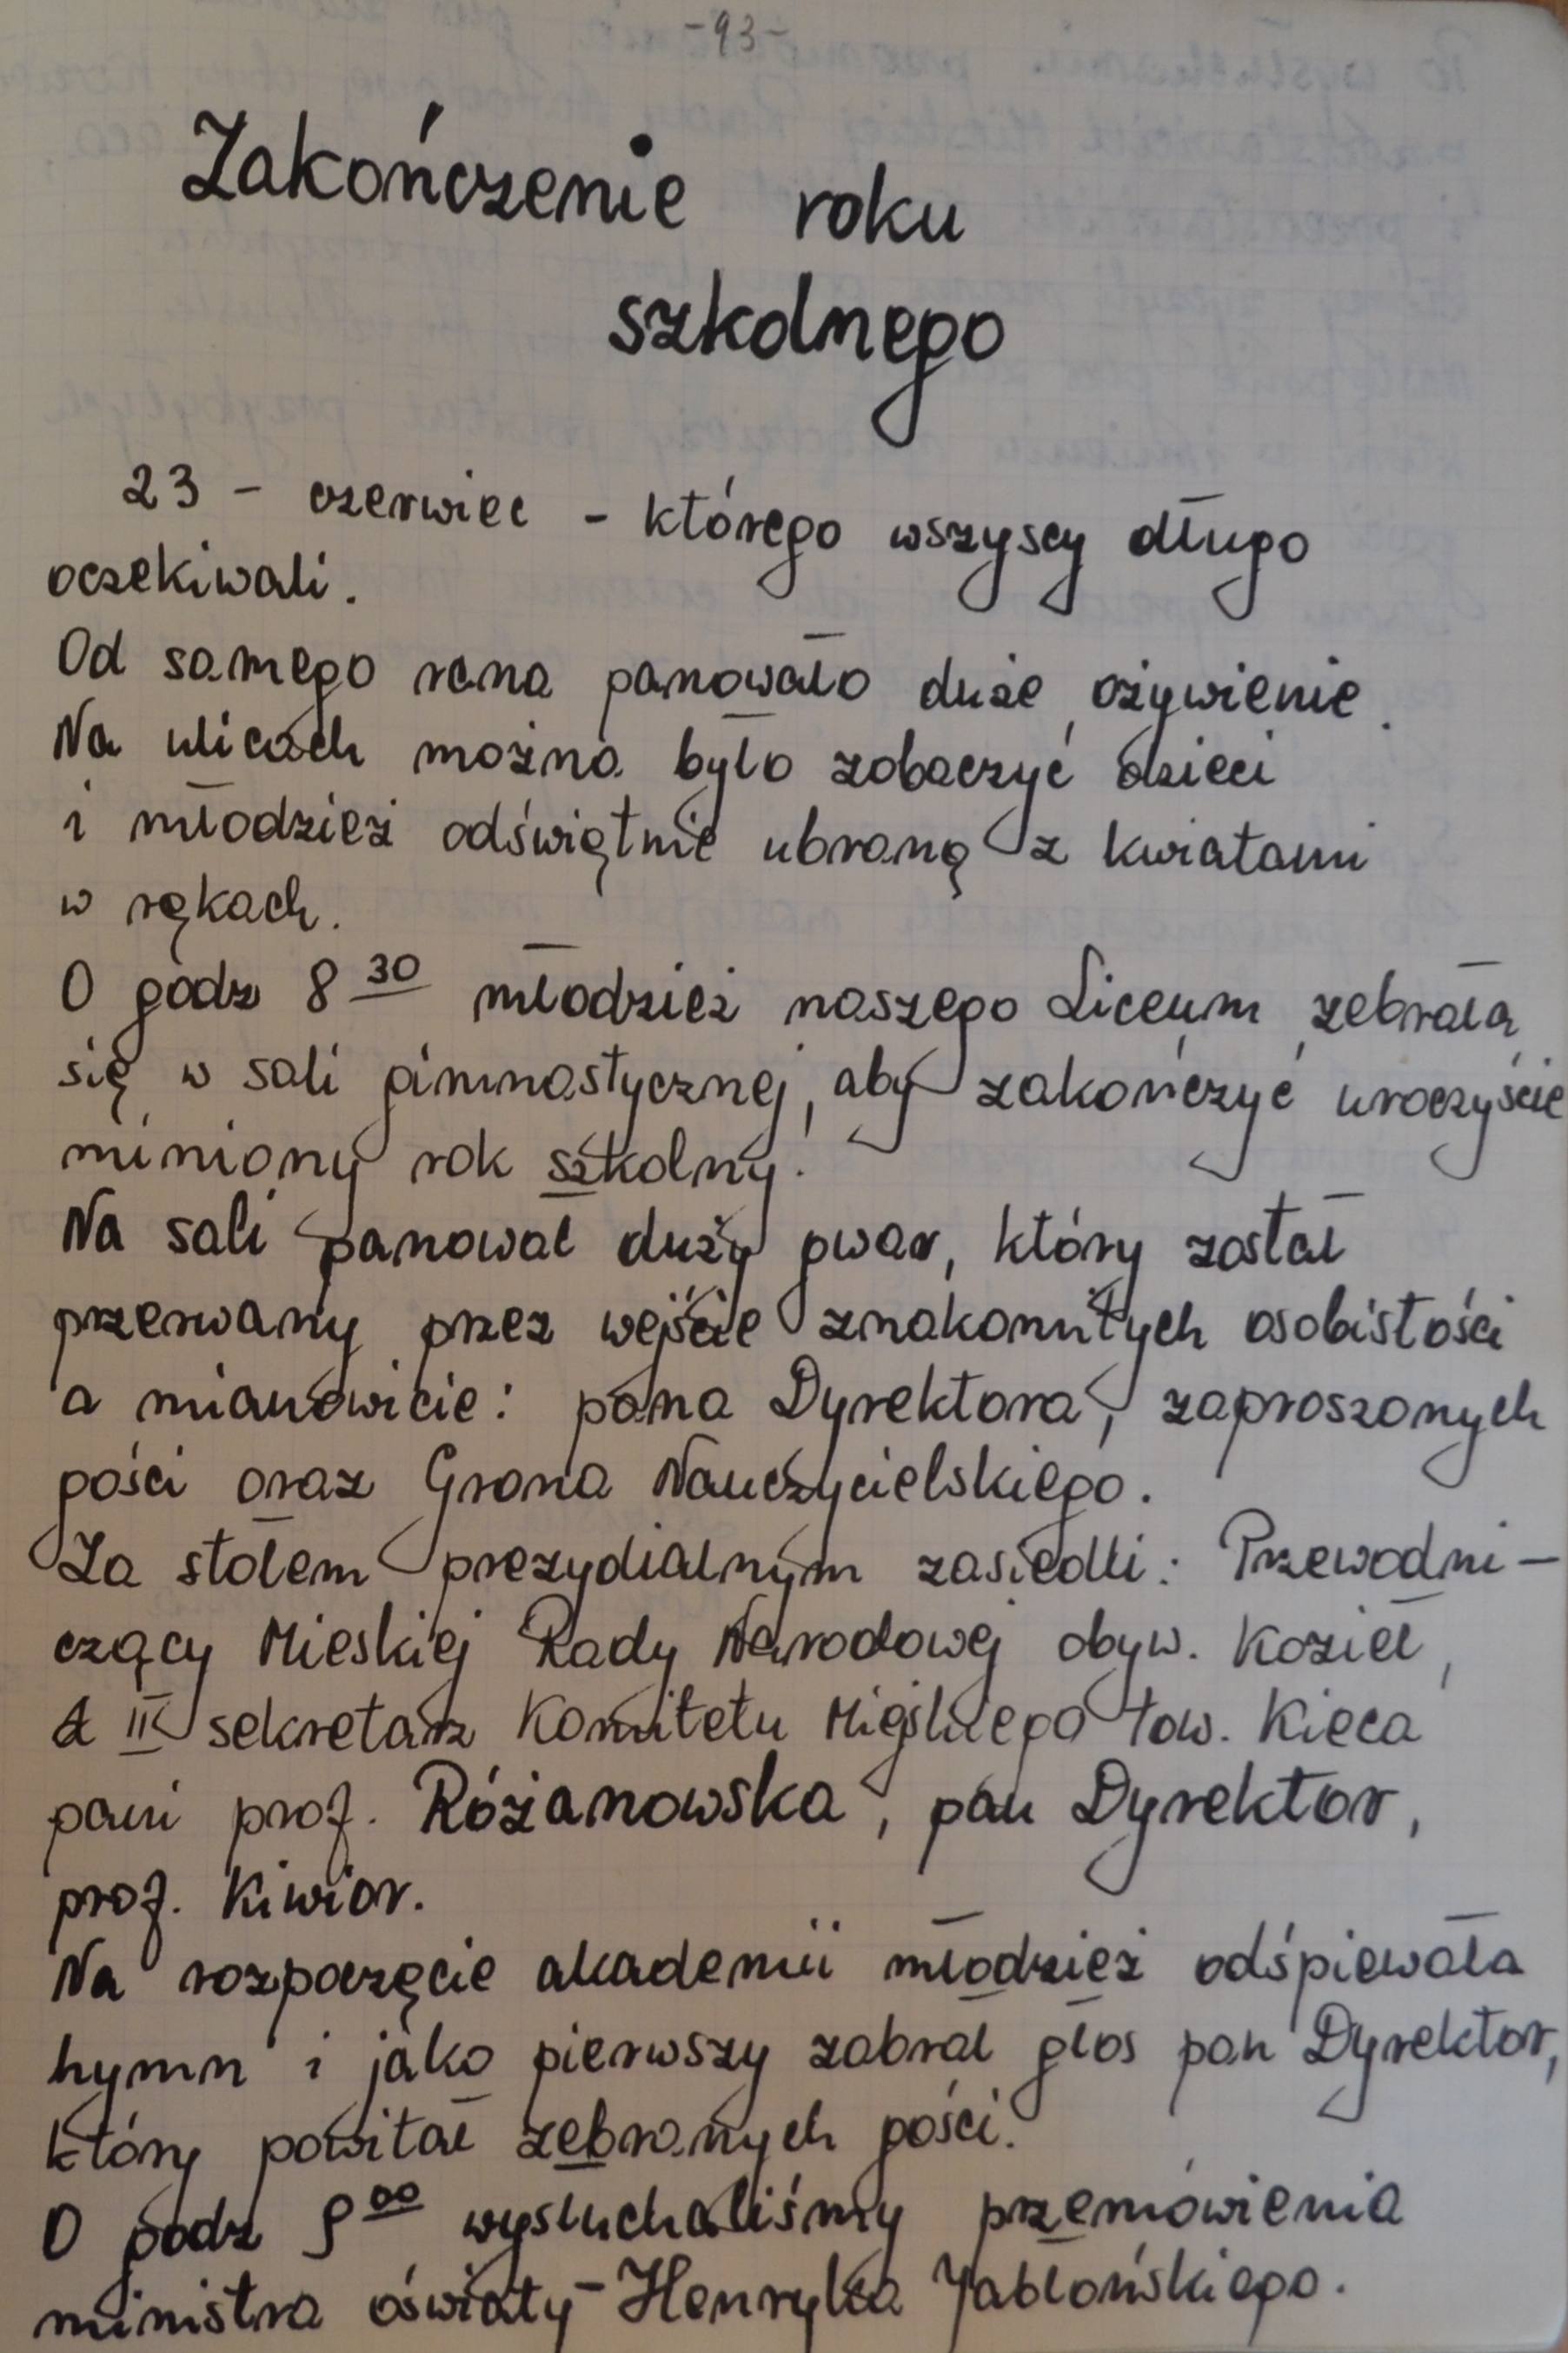 -93-
Zakończenie roku
szkolnego
23 - czerwiec - którego wszyscy długo
oczekiwali.
Od samego rana panowało duże ożywienie.
Na ulicach można było zobaczyć dzieci
i młodzież odświętnie ubraną z kwiatami
w rękach.
O godz 8 30 młodzież naszego Liceum zebrała
się w sali gimnastycznej, aby zakończyć uroczyście
miniony rok szkolny.
Na sali panował duży gwar, który został
przerwany przez wejście znakomitych osobistości
a mianowicie: pana Dyrektora, zaproszonych
gości oraz Grona Nauczycielskiego.
Za stołem prezydialnym zasiedli: Przewodni-
czący Mieskiej Rady Narodowej obyw. Kozieł,
II sekretarz Komitetu Miejskiego tow. Kieca
pani prof. Różanowska, pan Dyrektor,
prof. Kiwior.
Na rozpoczęcie akademii młodzież odśpiewała
hymn i jako pierwszy zabrał głos pan Dyrektor,
który powitał zebranych gości.
O godz 9 00 wysłuchaliśmy przemówienia
ministra oświaty - Henryka Jabłońskiego.